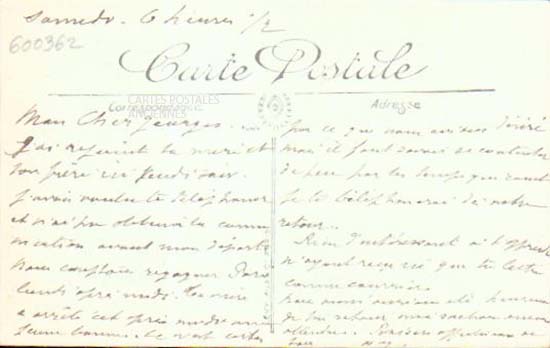 Samedi. 6 heures 1/2
600362
Carte Postale
Correspondance
CARTES POSTALES
ANCIENNES
Adresse
Mon Cher Georges.
J'ai rejoint ta mère et
ton frère ici Jeudi soir.
J'avais voulu te téléphoner
et n'ai pu obtenir la commu
nication avant mon départ
Nous comptons regagner Paris
lundi après midi.
a arrêté cet après midi une
par ce que nous avions désiré
mais il faut savoir se contenter
de peu par les temps qui sont
Je te téléphonerai dès notre
retour.
Rien d'intéressant à t'apprendre
n'ayant reçu ici que ta lettre
comme courrier.
Nous aurions été heureux
de ton retour
attendre.